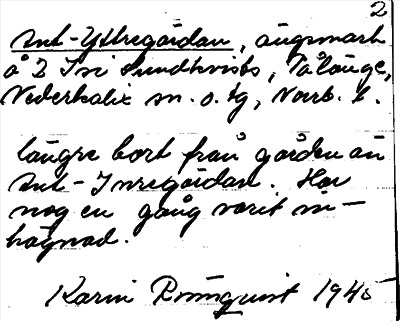 2
Ant-Yttregårdan, ängsmark
å 2 Ivi Sundkvists, Tålänge,
Nederkalix sn. o. tg, Norrb. l.
längre bort från gården än
Ant-Inregårdan. Har
nog en gång varit in-
hägnad.
Karin Rönnquist 1945